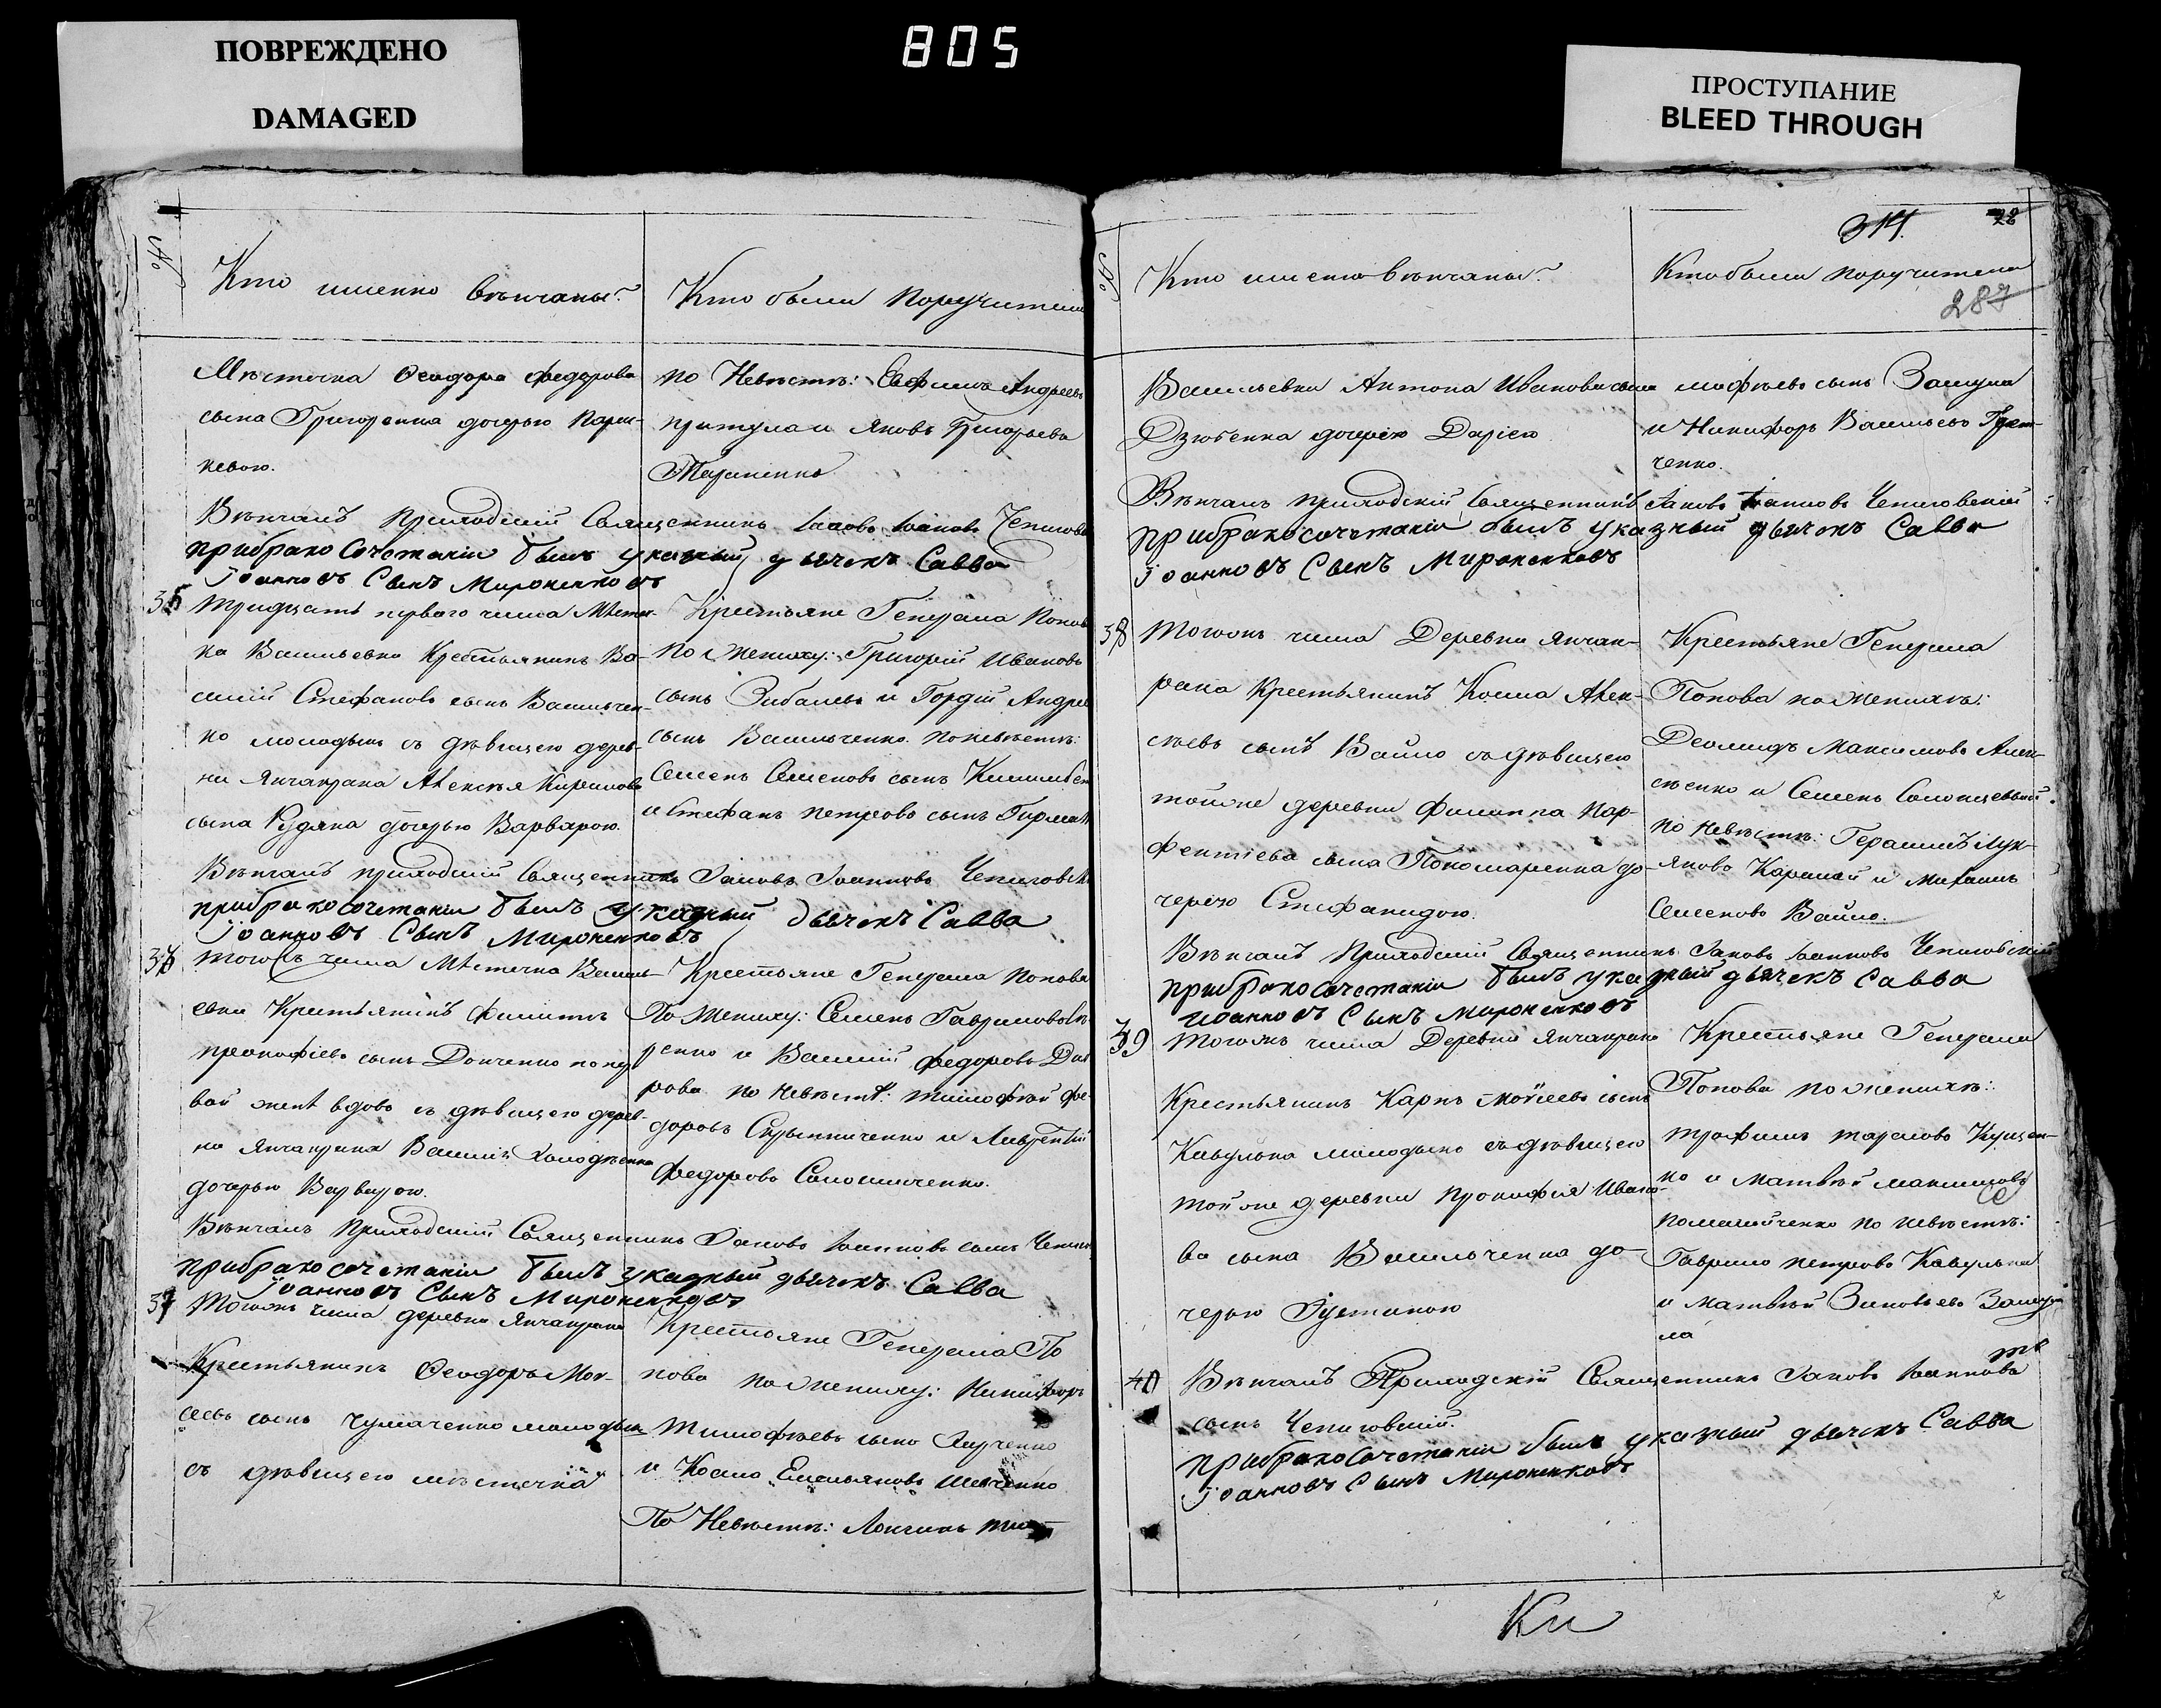 ПОВРЕЖДЕНО
DAMAGED
805
ПРОСТУПАНИЕ
BLEED THROUGH
№
Кто именно вѣнчаны?
Кто были Поручители
Мѣстечка Ѳеодора Федорова
сына Григоренка дочерью Парас-
кевою.
по Невѣстѣ: Евфимъ Андреевъ
притула и Яковъ Григорьевъ
Вѣнчалъ приходскій Священникъ Іаковъ Іоанновъ
при бракосочетаніи былъ указный дьячекъ Савва
Іоанновъ Сынъ Мироненковъ
35
тридцать перваго числа Мѣстеч-
ка Васильевки Крестьянинъ Ва-
силій Стефановъ сынъ Васильчен-
ко молодыкъ съ дѣвицею дерев-
ни Янчакрака Алексѣя Кирилова
сына Рудяка дочерью Варварою.
Крестьяне Генерала Попова
по жениху: Григорій Ивановъ
сынъ и Гордій Андреевъ
сынъ Васильченко. по невѣстѣ:
Семенъ Семеновъ сынъ
и Стефанъ Петровъ сынъ
Вѣнчалъ приходскій Священникъ Іаковъ Іоанновъ
при бракосочетаніи былъ указный дьячекъ Савва
Іоанновъ Сынъ Мироненковъ
36
тогожъ числа Мѣстечка Василь-
евки Крестьянинъ Филиппъ
Прокофіевъ сынъ Донченко по пер
вой женѣ вдовъ съ дѣвицею дерев-
ни Янчакрака Василія Холодненка
дочерью Варварою.
Крестьяне Генерала Попова
По Жениху: Семенъ Гавриловъ
и Василій Федоровъ
по Невѣстѣ: Тимофѣй Фе-
доровъ Скрыпниченко и Лаврентій
Федоровъ
Вѣнчалъ Приходскій Священникъ Іаковъ Іоанновъ сынъ
при бракосочетаніи былъ указный дьячекъ Савва
Іоанновъ Сынъ Мироненковъ
37
Тогожъ числа деревни Янчакрака
Крестьянинъ Ѳеодоръ Мои-
сеевъ сынъ Чумаченко молодыкъ
съ дѣвицею мѣстечка
Крестьяне Генерала По
пова по жениху: Никифоръ
Тимофѣевъ сынъ
и Косма Емельяновъ Шевченко
По Невѣстѣ: Логинъ Ти
314
28
№
Кто именно вѣнчаны?
Кто были поручители
287
Васильевки Антона Иванова сына
Дзюбенка дочерію Даріею
мофѣевъ сынъ
и Никифоръ Васильевъ
ченко.
Вѣнчалъ приходскій Священникъ Іаковъ Іоанновъ
при бракосочетаніи былъ указный дьячекъ Савва
Іоанновъ Сынъ Мироненковъ
38
Тогожъ числа Деревни Янчак-
рака Крестьянинъ Косма Алек-
сѣевъ сынъ Вайло съ дѣвицею
тойже деревни Филиппа Пар-
фентіева сына Пономаренка до-
черію Стефанидою.
Крестьяне Генерала
Попова по женихѣ:
Деомидъ Максимовъ Алек-
сѣенко и Семенъ
по Невѣстѣ: Герасимъ Лукь-
яновъ и Михаилъ
Семеновъ Вайло.
Вѣнчалъ Приходскій Священникъ Іаковъ Іоанновъ
при бракосочетаніи былъ указный дьячекъ Савва
Іоанновъ Сынъ Мироненковъ
39
Тогожъ числа Деревни Янчакрака
Крестьянинъ Карпъ Моѵсеевъ сынъ
Кавулька молодыкъ съ дѣвицею
тойже деревни Прокофія Ивано-
ва сына Васильченка до-
черью Іустиною
Крестьяне Генерала
Попова по женихѣ:
Трофимъ Тарасовъ Куцен-
ко и Матвѣй Максимовъ
по невѣстѣ:
Гаврило Петровъ Кавулька
и Матвѣй Зиновьевъ
40
Вѣнчалъ Приходскій Священникъ Іаковъ Іоанновъ
сынъ
при бракосочетаніи былъ указный дьячекъ Савва
Іоанновъ Сынъ Мироненковъ
Кн